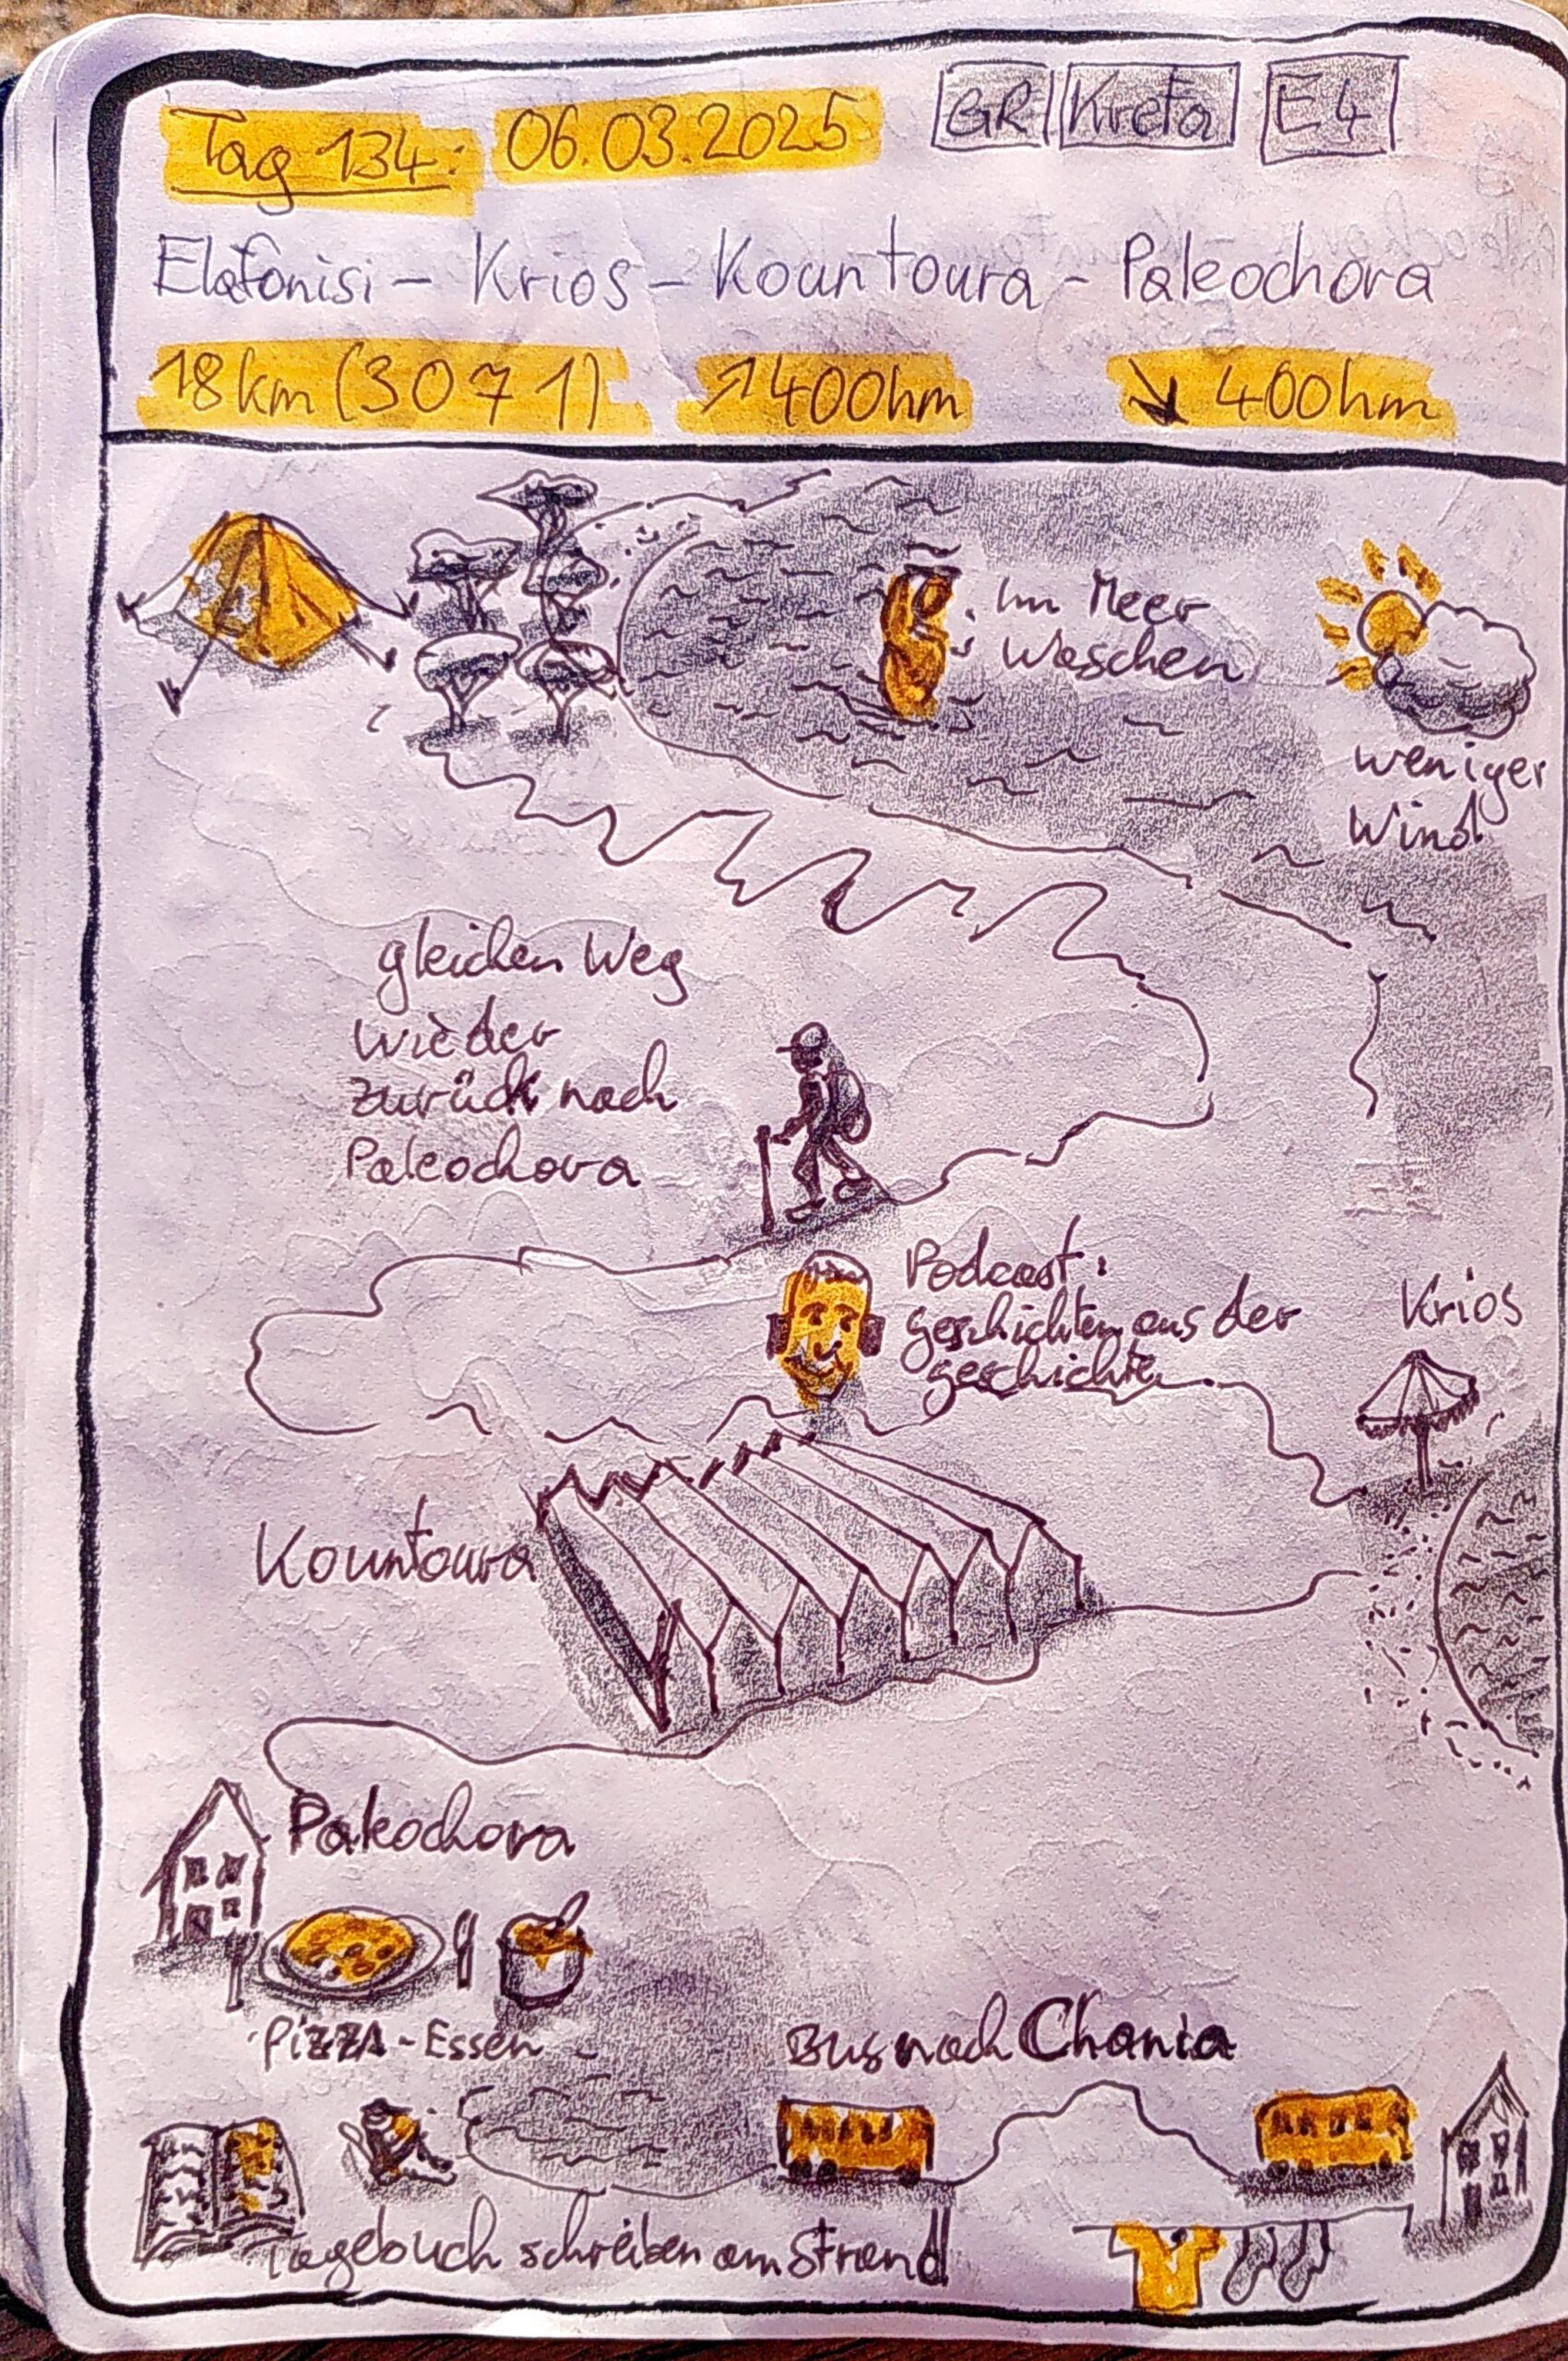 Tag 134: 06.03.2025 GR Kreta E4
Elafonisi - Krios - Kountoura - Paleochora
18km (3071) ↗400hm ↘ 400hm
Im Meer
Waschen
weniger
Wind
gleichen Weg
wieder
zurück nach
Paleochora
Podcast:
geschichten aus der
geschichte
Krios
Kountoura
Paleochora
PIZZA-Essen
Bus nach Chania
Tagebuch schreiben am Strand